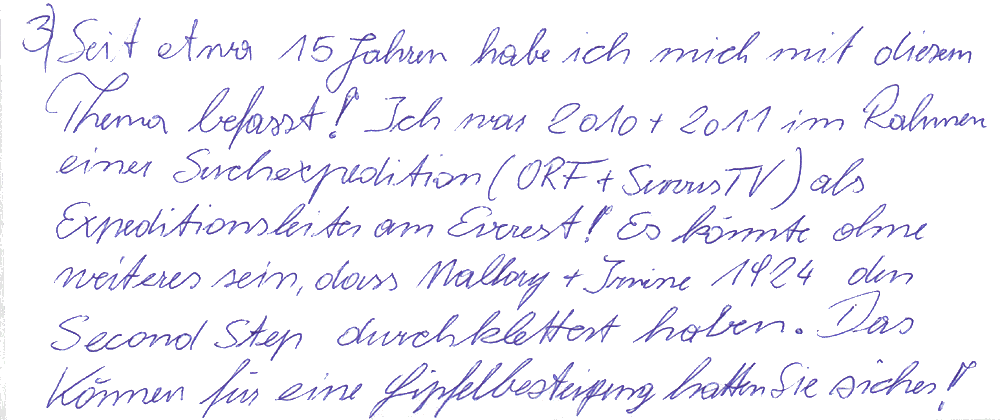 3) Seit etwa 15 Jahren habe ich mich mit diesem
Thema befasst! Ich war 2010 + 2011 im Rahmen
einer Suchexpedition (ORF + ServusTV) als
Expeditionsleiter am Everest! Es könnte ohne
weiteres sein, dass Mallory + Irvine 1924 den
Second Step durchklettert haben. Das
Können für eine Gipfelbesteigung hatten Sie sicher!